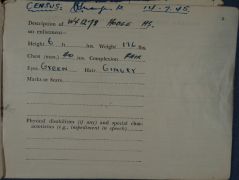 CENSUS. 14.7.45.
Description of
on enlistment:-
Height 6 ft. ins. Weight lbs.
Chest (max.) 40 ins. Complexion FAIR
Eyes GREEN Hair GINGERY
Marks or Scars
Physical disabilities (if any) and special char-
acteristics (e.g., impediment in speech)